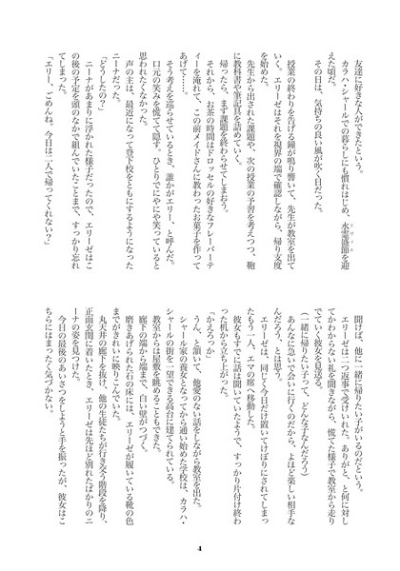 友達に好きな人ができたという。
カラハ・シャールでの暮らしにも慣れはじめ、水霊盛節を迎
えた頃だ。
その日は、気持ちの良い風が吹く日だった。
授業の終わりを告げる鐘が鳴り響いて、先生が教室を出て
いく。エリーゼはそれを視界の端で確認しながら、帰り支度
を始めた。
先生から出された課題や、次の授業の予習を考えつつ、鞄
に教科書や筆記具を詰めていく。
帰ったら、まず課題を終わらせてしまおう。
それから、お茶の時間はドロッセルの好きなフレーバーテ
ィーを淹れて、この前メイドさんに教わったお菓子を作って
あげて……。
そう考えを巡らせているとき、誰かがエリー、と呼んだ。
口元の笑みを慌てて隠す。ひとりでにやにや笑っていると
思われたくなかった。
声の主は、最近になって登下校をともにするようになった
ニーナだった。
「どうしたの？」
ニーナがあまりに浮かれた様子だったので、エリーゼはこ
の後の予定を頭のなかで組んでいたことまで、すっかり忘れ
てしまった。
「エリー、ごめんね。今日は二人で帰ってくれない？」
聞けば、他に一緒に帰りたい子がいるのだという。
エリーゼは二つ返事で受けいれた。ありがと、と何に対し
てかわからない礼を聞きながら、慌てた様子で教室から走り
でていく彼女を見送る。
（一緒に帰りたい子って、どんな子なんだろう）
あんなに急いで会いに行くのだから、よほど楽しい相手な
んだろう、とは思う。
エリーゼは、同じく今日だけ置いてけぼりにされてしまっ
たもう一人、エマの席へ移動した。
彼女もすでに話は聞いていたようで、すっかり片付け終わ
った机から立ち上がった。
「かえろっか」
うん、と頷いて、他愛のない話をしながら教室を出た。
シャール家の養女となってから通い始めた学校は、カラハ・
シャールの街を一望できる高台に建てられている。
教室からは屋敷を眺めることもできた。
廊下の端から端まで、白い壁がつづく。
磨きあげられた石の床には、エリーゼが履いている靴の色
までがきれいに映りこんでいた。
丸天井の廊下を抜け、他の生徒たちが行き交う階段を降り、
正面玄関に着いたとき、エリーゼは先ほど別れたばかりのニ
ーナの姿を見つけた。
今日の最後のあいさつをしようと手を振ったが、彼女はこ
ちらにはまったく気づかない。
4